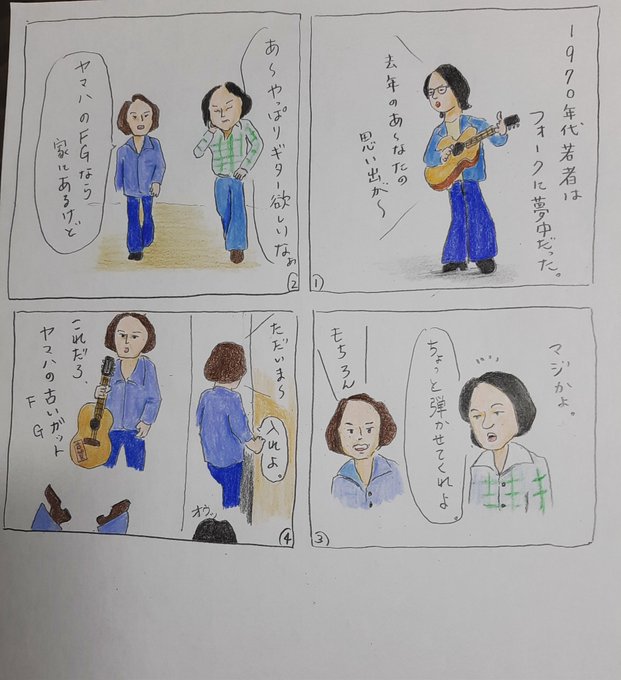 1970年代若者は
フォークに夢中だった。
去年のあ〜なたの
思い出が〜
①
あ〜やっぱりギター欲しいなぁ
ヤマハのFGなら
家にあるけど
②
マジかよ。
ちょっと弾かせてくれよ。
もちろん
③
ただいま〜
入れよ。
オウッ
これだろ、
ヤマハの古いガット
FG
④